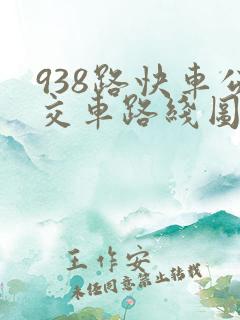 938路快车公
交车路线图
王作安
未经同意禁止转载